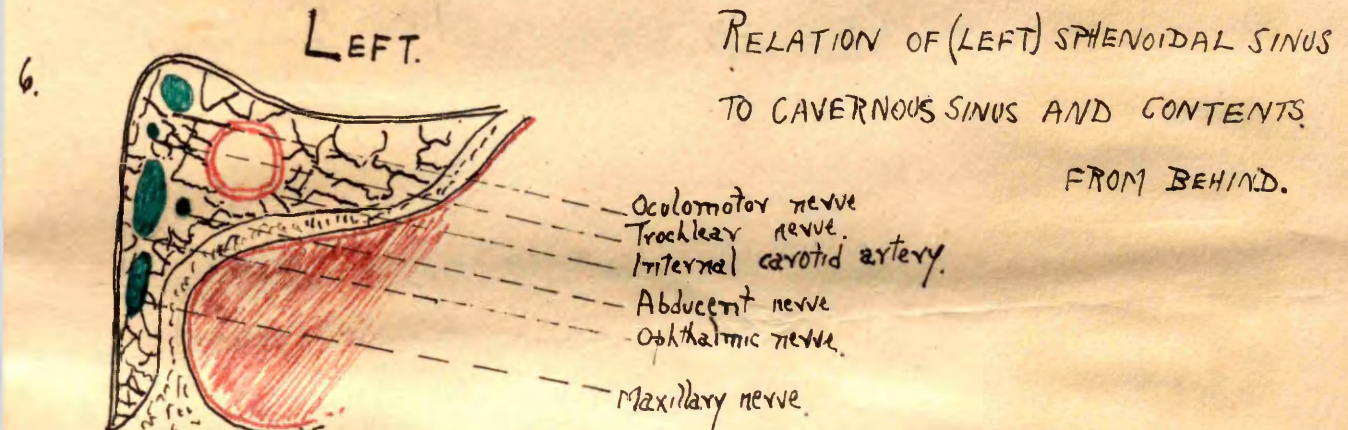 6.
LEFT.
RELATION OF (LEFT) SPHENOIDAL SINUS
TO CAVERNOUS SINUS AND CONTENTS
FROM BEHIND.
Oculomotor nerve
Trochlear nerve.
Internal carotid artery.
Abducent nerve
Ophthalmic nerve.
Maxillary nerve.